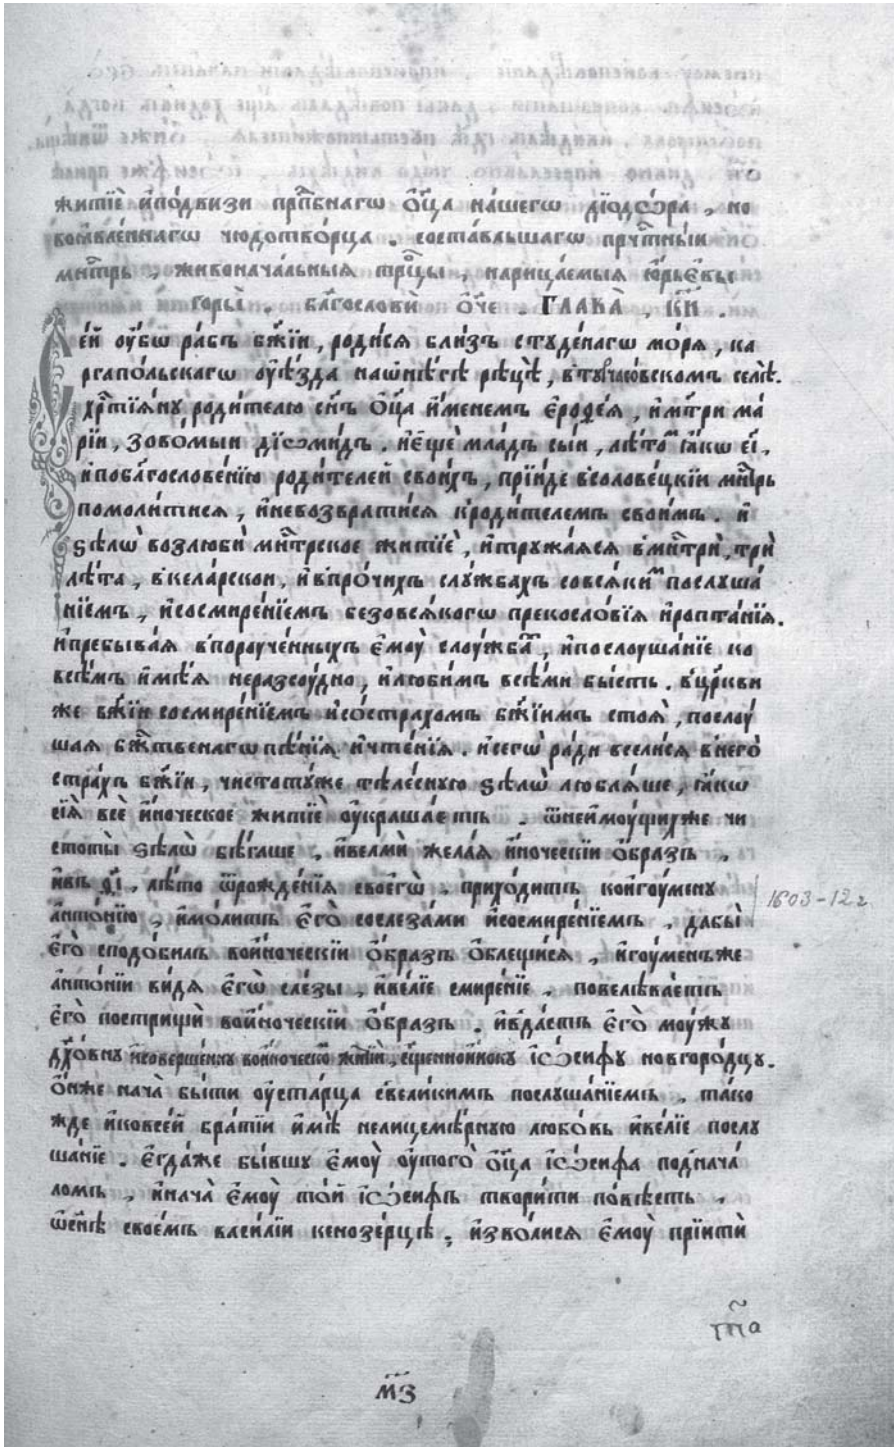 житїѐ и҆по́двизи прⷣпбнагѡ ѻ҆ц҃а на́шегѡ дїодѡ́ра , но
воꙗ҆вле́ннагѡ чюдотво́рца . соста́вльшагѡ прчⷭ҇тны́и
мнⷭ҇трь , живонача́льныѧ трⷪ҇цы , нарица́емыѧ ю҆́рьевы
горы̀ . блг҃ословѝ ѻ҆́ч҃е . ГЛАВА̀ , к҃и .
Се́й ᲂу҆́бѡ ра́бъ бж҃їи , роди́сѧ бли́зъ стꙋде́нагѡ мо́рѧ , ка
ргапо́льскагѡ ᲂу҆е́зда наѡ҆нѣ́гѣ рѣцѣ̀ , в̾тꙋрчасовскомъ селѣ̀ .
хрⷭ҇тїѧ́нꙋ роди́телю сн҃ъ ѻ҆ц҃а и҆́менемъ є҆роѳе́ѧ , и҆мт҃ри ма
рі́и , зовомыи дїѡми́дъ . и҆є҆щѐ мла́дъ сы́и , лѣ́тоⷨ ꙗ҆́кѡ є҃і ,
и҆поблг҃ослове́нїю роди́телей свои́хъ , прїи́де в̾солове́цкїи мнⷭ҇трь
помоли́тисѧ , и҆невозврати́сѧ к̾роди́телемъ свои́мъ . и҆
ѕѣлѡ̀ возлюбѝ мнⷭ҇трское житїѐ , и҆трꙋжа́ѧсѧ в̾мнⷭ҇трѝ , трѝ
лѣ́та , в̾ке́ларскои , и҆в̾про́чихъ слꙋ́жбахъ совсѧ́киⷨ послꙋша́
нїемъ , и҆сосмире́нїемъ безовсѧ́когѡ прекосло́вїѧ и҆ропта́нїѧ .
и҆пребыва́ѧ в̾порᲂуче́нныхъ є҆мᲂу̀ слᲂу́жбаⷯ , и҆послᲂуша́нїе ко
всѣ́мъ и҆мѣ́ѧ неразсᲂу́дно , и҆люби́мъ всѣ́ми бы́сть . в̾цр҃кви
же бж҃їи сосмире́нїемъ и҆состра́хомъ бж҃їимъ стоѧ̀ , послᲂу́
шаѧ бжⷭ҇твенагѡ пѣ́нїѧ и҆чте́нїѧ . и҆сегѡ̀ ра́ди всели́сѧ в̾него̀
стра́хъ бж҃їи , чистотꙋ́же тѣле́снꙋю ѕѣлѡ̀ люблѧ́ше , ꙗ҆́кѡ
сїѧ̀ всѐ и҆́ноческое житїѐ ᲂу҆краша́етъ . ѿнеи҆мᲂу́щихже чи
стоты̀ ѕѣлѡ̀ бѣ́гаше , и҆велмѝ жела́ѧ и҆́ноческїи ѻ҆́бразъ ,
и҆въ ѳ҃і , лѣ́то ѿрожде́нїѧ своегѡ̀ , прихо́дитъ кои҆гᲂу́менꙋ
а҆нто́нїю , и҆мо́литъ є҆го̀ сослеза́ми и҆сосмире́нїемъ , дабы̀
є҆го̀ сподо́билъ вои҆́ноческїи ѻ҆́бразъ ѻ҆блещи́сѧ , и҆гᲂу́менъже
а҆нто́нїи ви́дѧ є҆гѡ̀ сле́зы , и҆ве́лїе смире́нїе , повелѣва́етъ
є҆го̀ постри́щѝ вои҆́ноческїи ѻ҆́бразъ . и҆в̾да́стъ є҆го̀ мᲂу́жꙋ
дх҃о́внꙋ и҆соверше́ннꙋ вои҆́ноческоⷨ житїѝ , сщ҃еннои҆́нокꙋ і҆ѡ́сифꙋ новгоро́дцꙋ .
ѻ҆́нже нача̀ бы́ти ᲂу҆ста́рца свели́кимъ послꙋша́нїемъ , та́ко
жде и҆ковсе́й бра́тїи и҆мѣ̀ нелицемѣ́рнꙋю любо́вь и҆ве́лїе послꙋ
ша́нїе . є҆гда́же бы́вшꙋ є҆мᲂу̀ ᲂу҆того̀ ѻ҆ц҃а і҆ѡ́сифа под̾нача́
ломъ , и҆нача̀ є҆мᲂу̀ то́й і҆ѡ́сифъ твори́ти по́вѣсть ,
ѡ҆сн҃ѣ свое́мъ васи́лїи кенозе́рцѣ , и҆зво́лисѧ є҆мᲂу̀ прїитѝ
1603-12 г
т҃па
м҃з